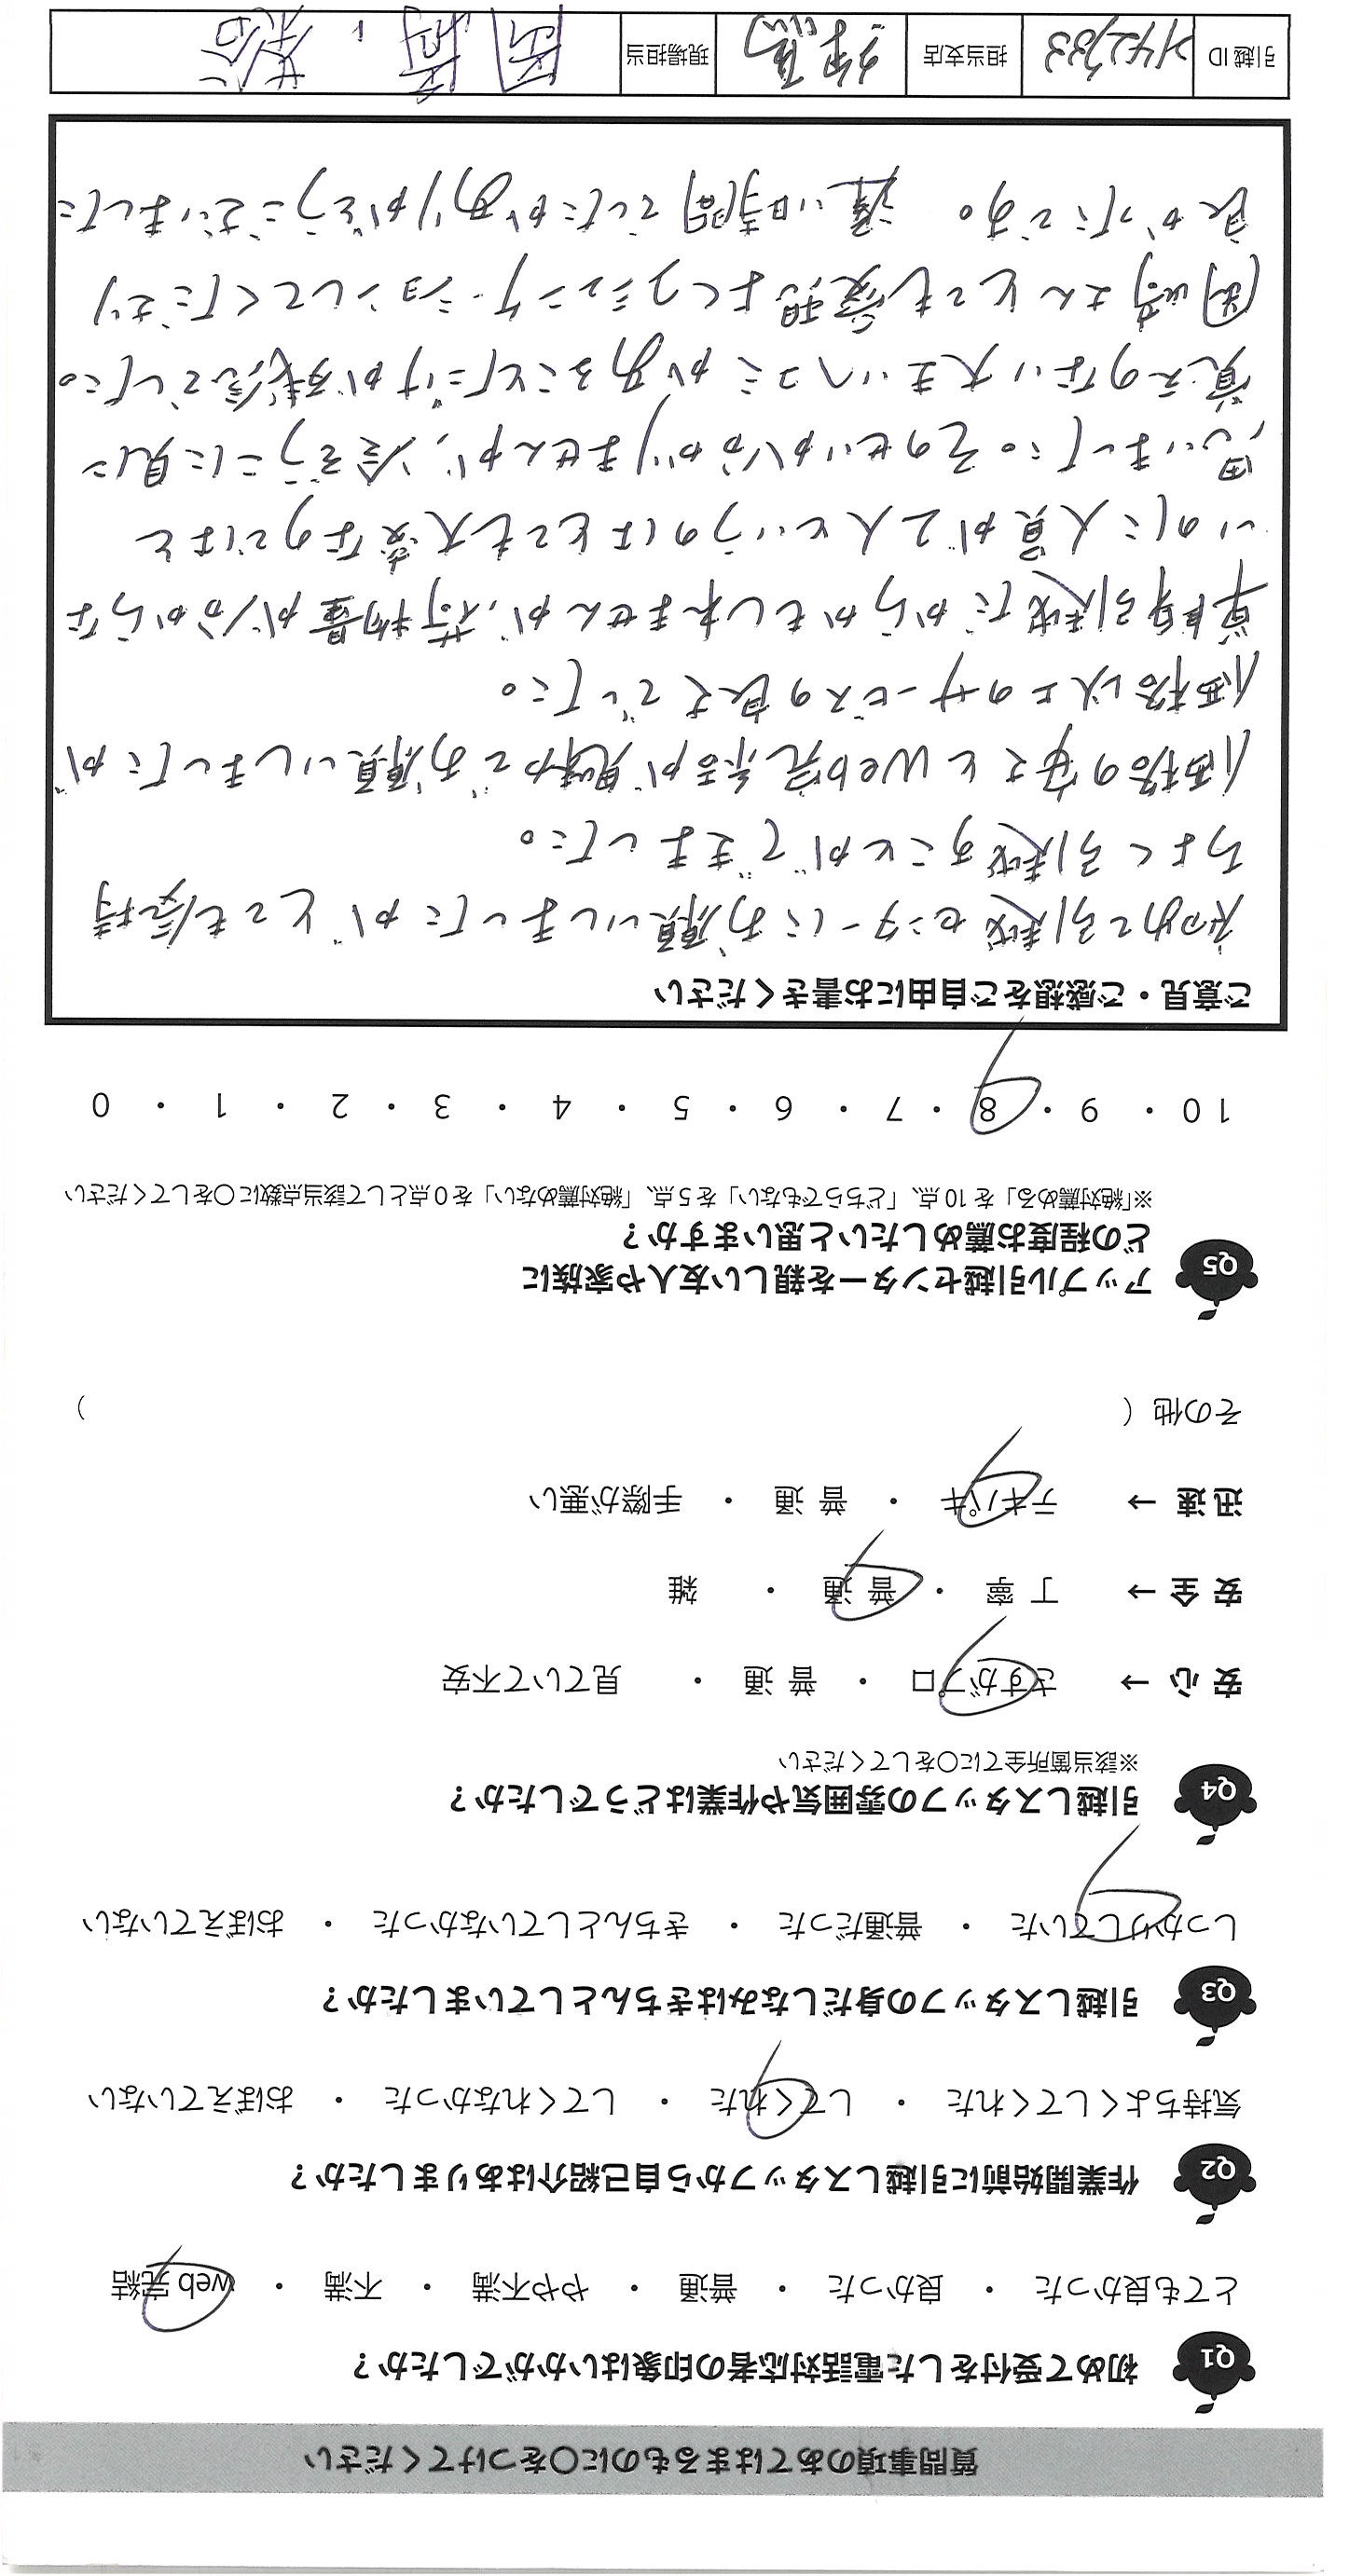 質問事項のあてはまるものに〇をつけてください
Q1 初めて受付をした電話対応者の印象はいかがでしたか？
とても良かった ・ 良かった ・ 普通 ・ やや不満 ・ 不満 ・ web 完結
Q2 作業開始前に引越しスタッフから自己紹介はありましたか？
気持ちよくしてくれた ・ してくれた ・ してくれなかった ・ おぼえていない
Q3 引越しスタッフの身だしなみはきちんとしていましたか？
しっかりしていた ・ 普通だった ・ きちんとしていなかった ・ おぼえていない
Q4 引越しスタッフの雰囲気や作業はどうでしたか？
※該当箇所全てに〇をしてください
安 心 → さすがプロ ・ 普 通 ・ 見ていて不安
安 全 → 丁 寧 ・ 普 通 ・ 雑
迅 速 → テキパキ ・ 普 通 ・ 手際が悪い
その他（ ）
Q5 アップル引越センターを親しい友人や家族に
どの程度お薦めしたいと思いますか？
※「絶対薦める」を 10 点、「どちらでもない」を 5 点、「絶対薦めない」を 0 点として該当点数に〇をしてください
10 ・ 9 ・ 8 ・ 7 ・ 6 ・ 5 ・ 4 ・ 3 ・ 2 ・ 1 ・ 0
ご意見・ご感想をご自由にお書きください
初めて引越センターにお願いしましたが とても気持
ちよく引越すことができました。
価格の安さとWeb完結が魅力でお願いしましたが
価格以上のサービスの良さでした。
単身引越だからかもしれませんが、荷物量が分からな
いのに人員が2人というのはとても大変なのではと
思いました。そのせいか分かりませんが、冷ぞうこに見に
覚えのない大きいヘコミがあることだけが残念でした。
岡崎さんとても愛想よくコミュニケーションしてくださり
良かったです。 遅い時間でしたがありがとうございました
引越 ID 担当支店 練馬 現場担当 岡崎、